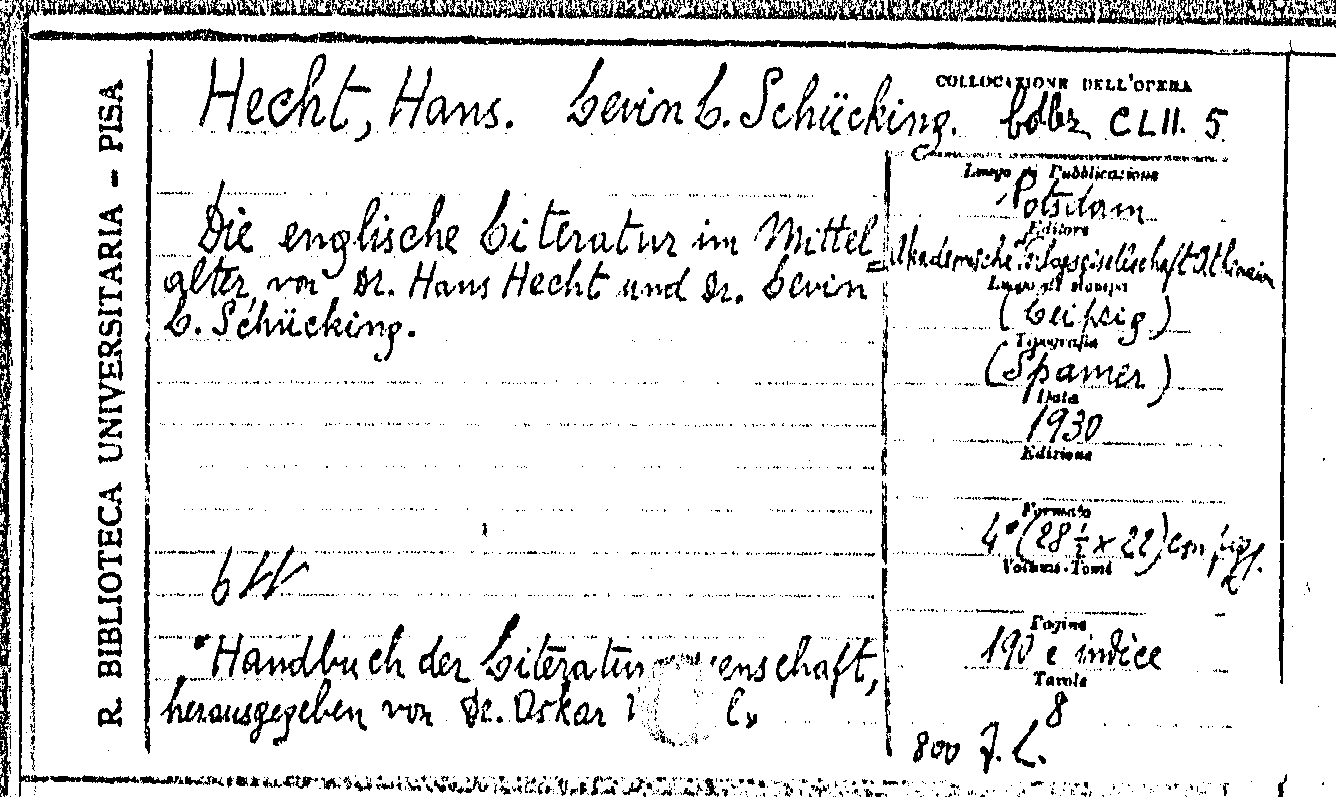 R. BIBLIOTECA UNIVERSITARIA - PISA
Hecht, Hans. Levin L. Schücking.
COLLOCAZIONE DELL'OPERA
CLII. 5
Die englische Literatur im Mittel=
alter, von Dr. Hans Hecht und Dr. Levin
L. Schücking.
Luogo di Pubblicazione
Potsdam
Editore
Akademische Verlagsgesellschaft Athenaion
Luogo di stampa
(Leipzig)
Tipografia
(Spamer)
Data
1930
Edizione
Formato
4° (28½ x 22) con figg.
Volumi-Tomi
Pagine
190 e indice
Tavole
8
"Handbuch der Literatur enschaft,
herausgegeben von Dr. Oskar